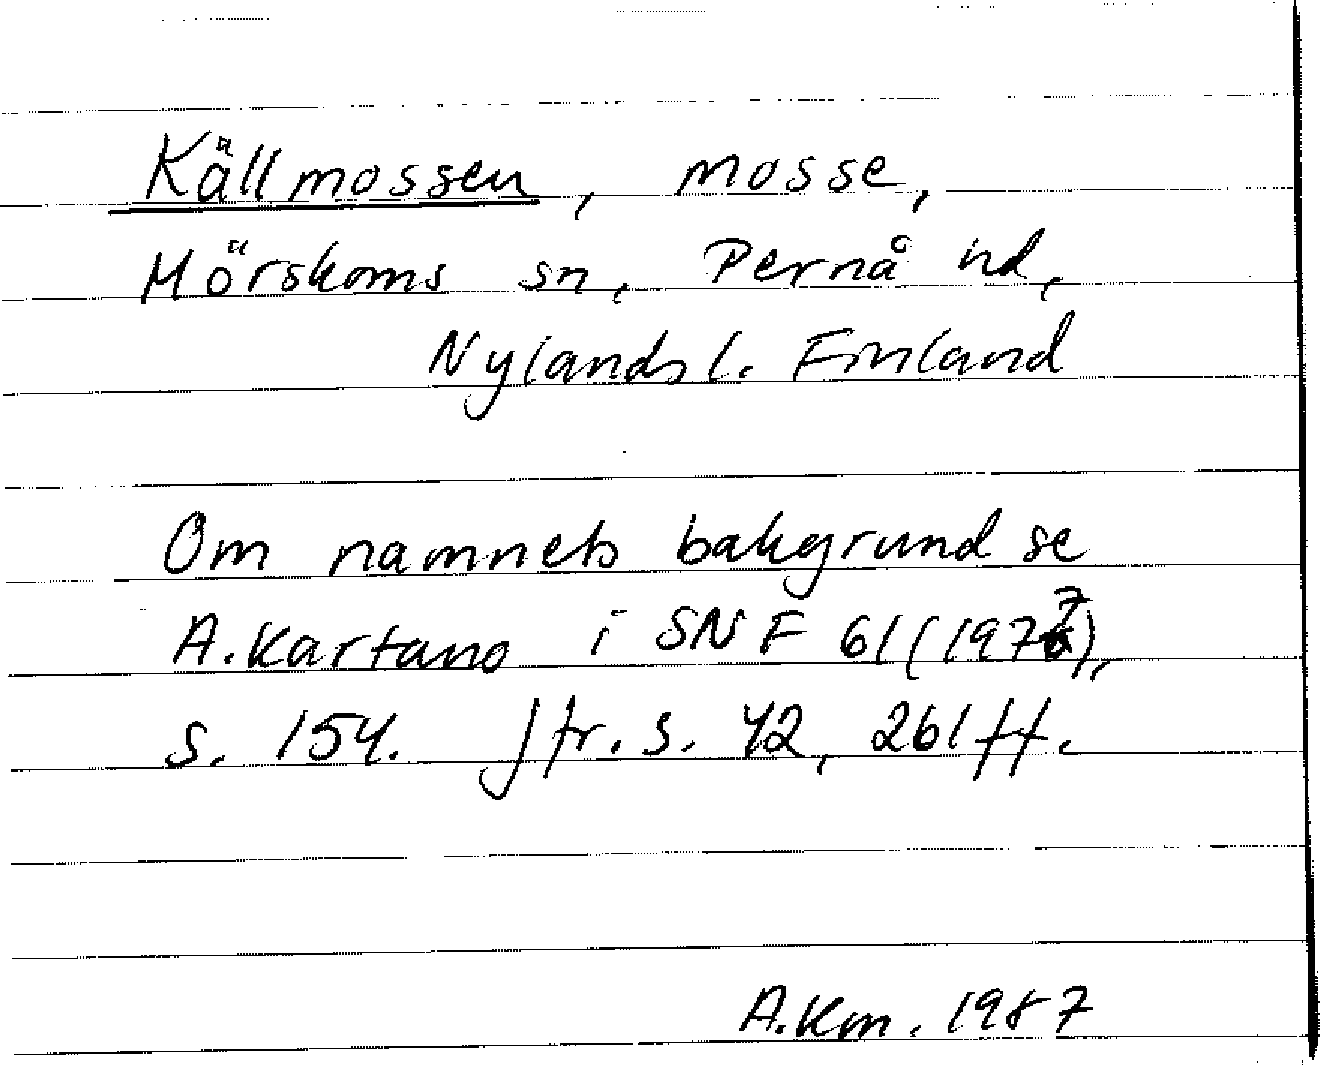 Källmossen, mosse,
Mörskoms sn, Pernå hd,
Nylands l. Finland
Om namnets bakgrund se
A. Kartano i SNF 61 (1977),
s. 154. Jfr. s. 42, 261 ff.
A.Km. 1987